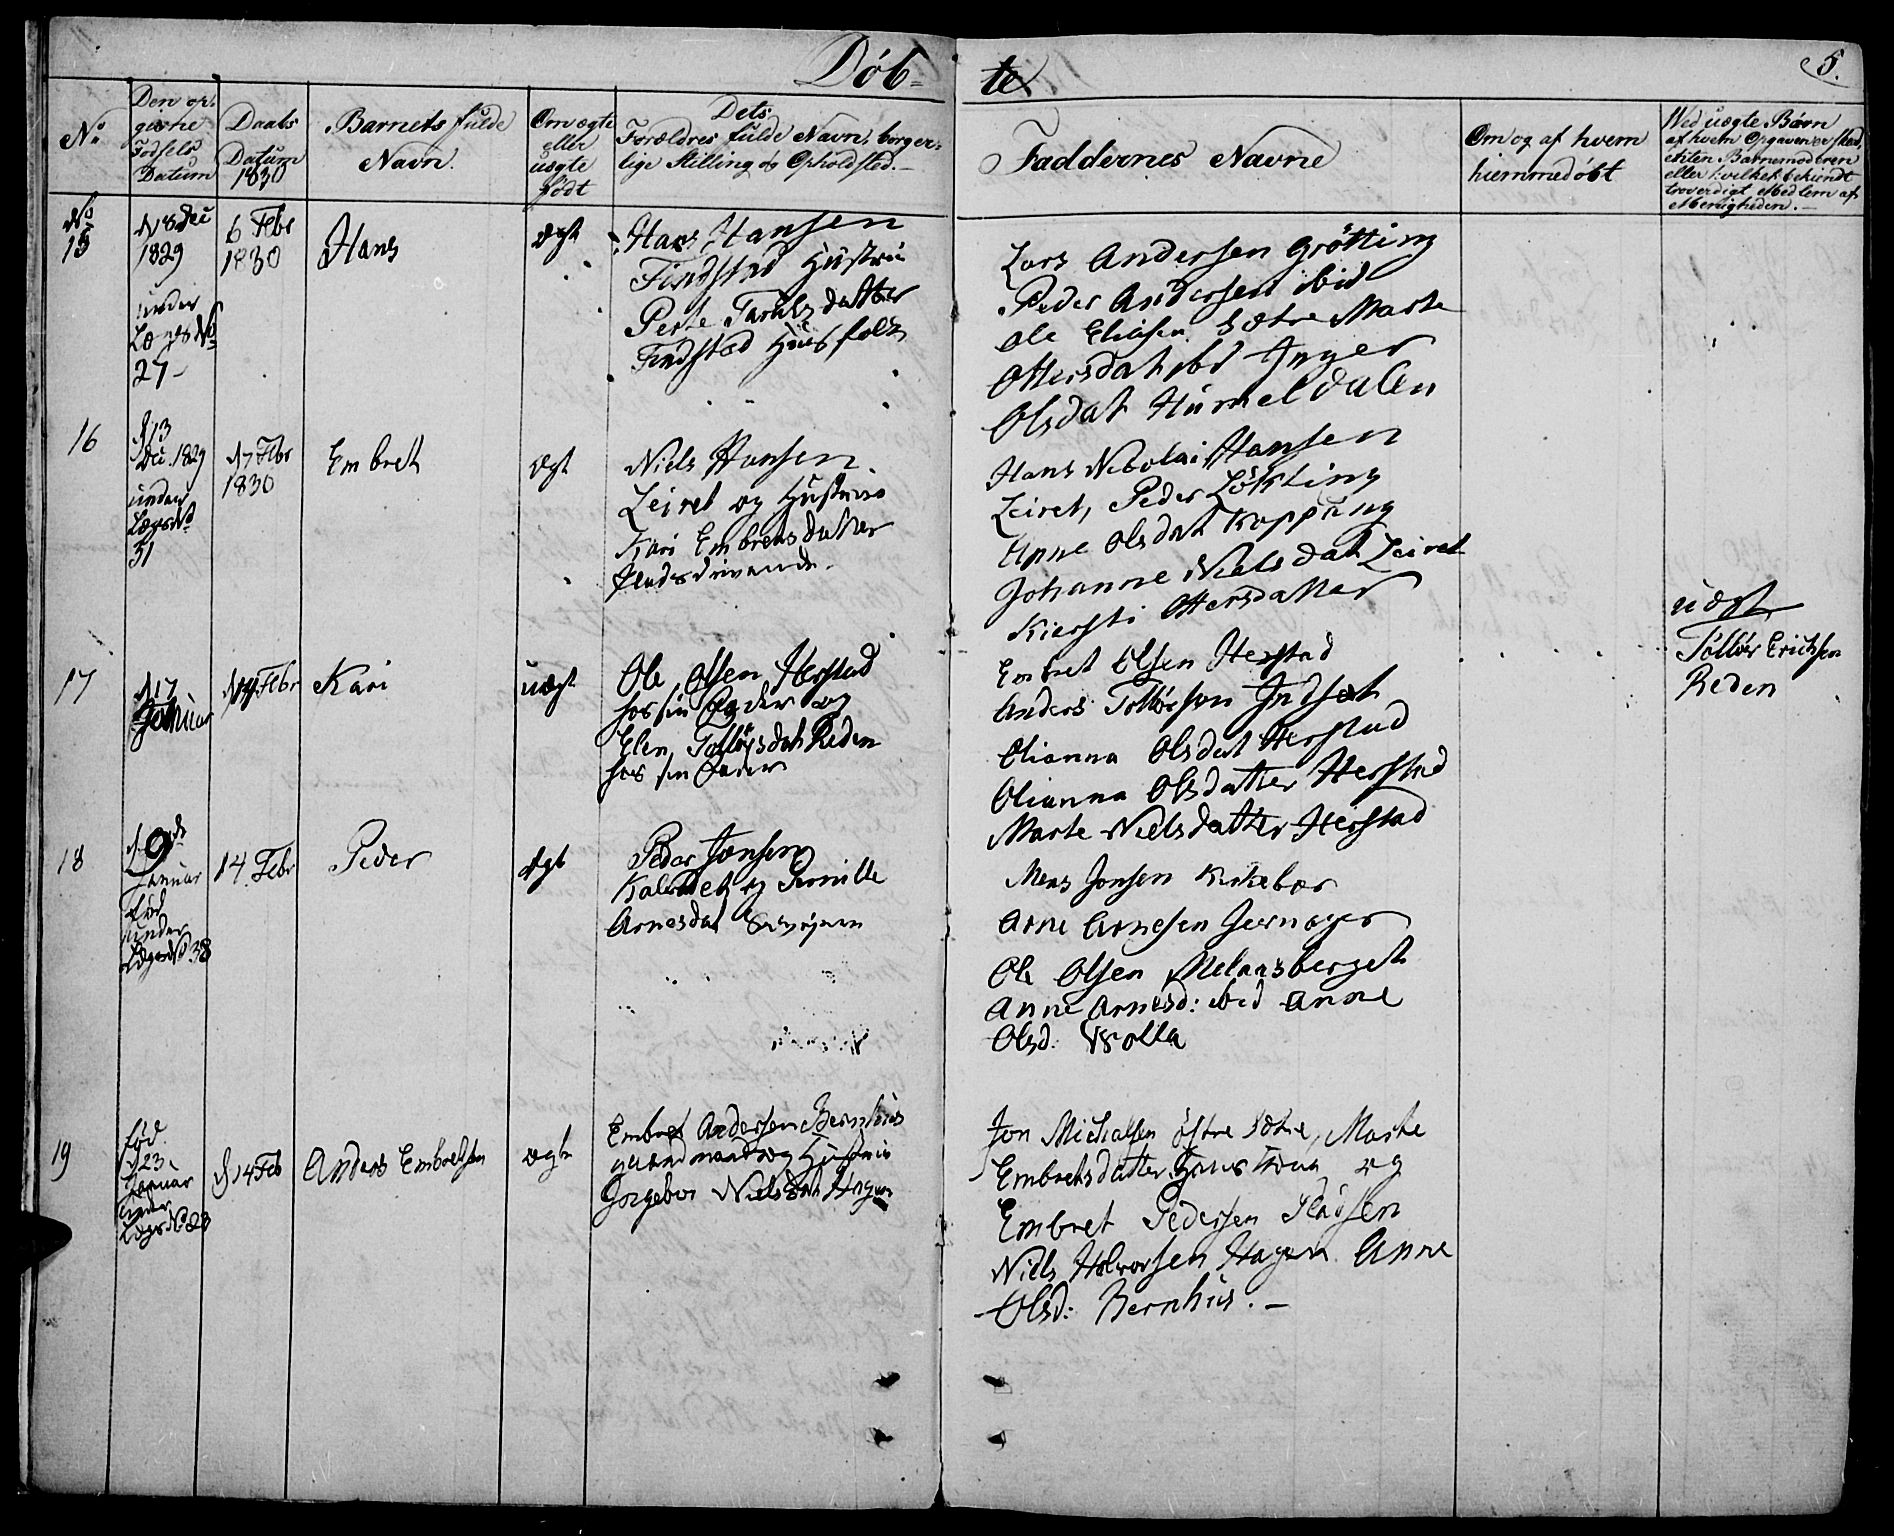 Døb=
te
5.
No
Den op-
givne
Fødsels
Datum
Daabs
Datum
1830
Barnets fulde
Navn.
Om ægte
eller
uægte
født
Dets
Forældres fulde Navn, borger-
lige Stilling og Opholdsted.-
Faddernes Navne
Om og af hvem
hiemmedøbt
Ved uægte Børn
af hvem Opgaven er skeed,
enten Barnemoderen
eller hvilket bekiendt
troværdigt Medlem af
Menigheden.-
No
15
d 18 Dec
1829
under
Lægs No
27-
6 Febr
1830
Hans
ægt
Hans Hansen
Findstad Hustru
Perte datter
Findstad Huusfolk
Lars Andersen Grøtting
Peder Andersen ibid
Ole Eliasen Sætre Marte
Ottersdat ibd Inger
Olsdat Hummeldalen
16
d 13
Dec. 1829
under
Lægs No
31
d 7 Febr
1830
Embret
ægt
Niels Hansen
Leiret og Hustrue
Kari Embretsdatter
Pladsdrivende.
Hans Nicolai Hansen
Leiret, Peder Løkting
Anne Olsdat Koppang
Johanne Nielsdat Leiret
Kiersti Ottersdatter
17
d 17
Januar
d 14 Febr
Kari
uægt
Ole Olsen Herstad
hos sin Fader og
Elen Relling
hos sin Fader
Embret Olsen Herstad
Anders Tolløfsen Indset
Olianna Olsdat Herstad
Olianna Olsdatter Herstad
Marte Nielsdatter Herstad
uægt
Tolløv Erichsen
Reden
18
d. 9de
Januar
fød
under
Lægs No 38
14. Febr
Peder
ægt
Peder Jonsen
og Pernille
Arnesdat
Mons Jonsen Kirkebøe
Arne Arnesen
Ole Olsen Melaasberget
Anne Arnesd: ibid Anne
Olsd: Volla
19
fød
d 23
Januar
under
Lægs No 23
d 14 Feb
Anders Embretsen
ægte
Embret Andersen Bernhus
gaardmand og Hustrue
Ingebor Nielsdat Hagen
Jon Michalsen østre Sætre, Marte
Embretsdatter og
Embret Pedersen
Niels Halvorsen Hagen Anne
Olsd: Bernhus.-